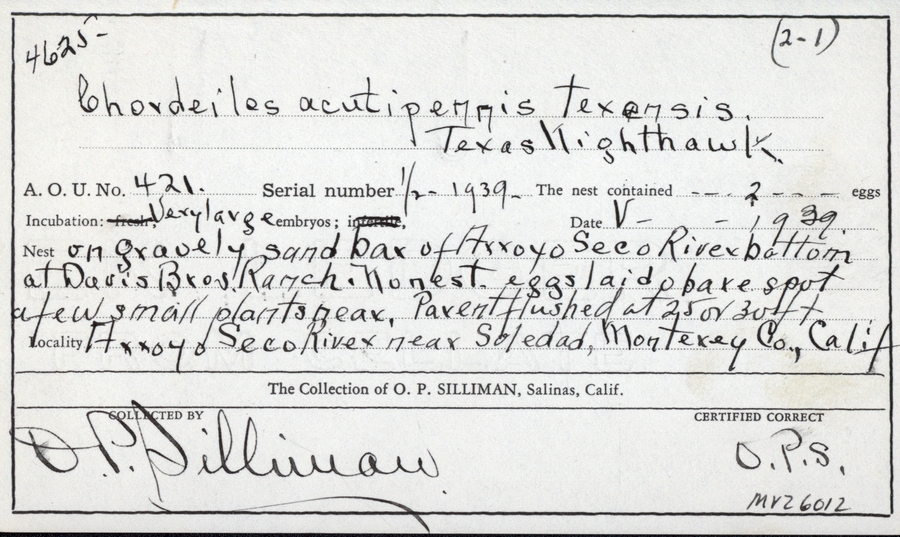 4625- (2-1)
Chordeiles acutipennis texensis.
Texas Nighthawk.
A. O. U. No. 421. Serial number 1/2- 1939. The nest contained --- 2 --- eggs
Incubation: fresh, Very large embryos; infertile, Date V- - 1939.
Nest on gravely sand bar of Arroyo Seco River bottom
at Davis Bros. Ranch. No nest. eggs laid o bare spot
a few small plants near, Parent flushed at 25 or 30 ft
Locality Arroyo Seco River near Soledad, Monterey Co., Calif
The Collection of O. P. SILLIMAN, Salinas, Calif.
COLLECTED BY CERTIFIED CORRECT
O.P. Silliman. O.P.S.
MVZ 6012